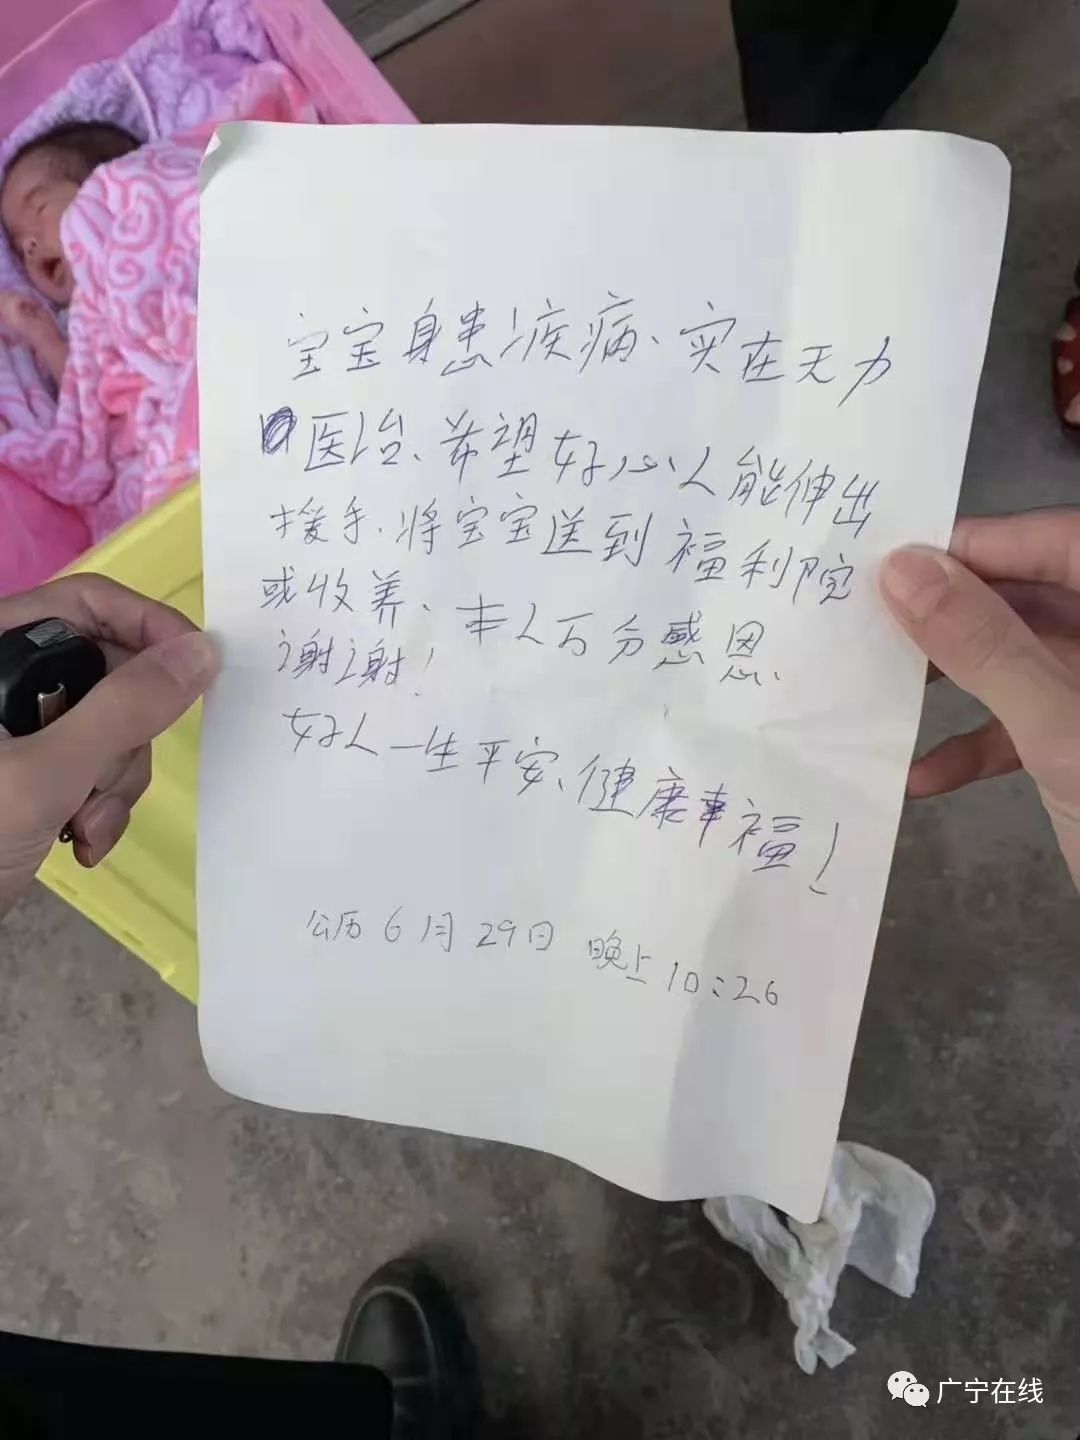 宝宝身患疾病、实在无力
医治、希望好心人能伸出
援手、将宝宝送到福利院
或收养、本人万分感恩、
谢谢!
好人一生平安、健康幸福!
公历6月29日 晚上10:26
广宁在线